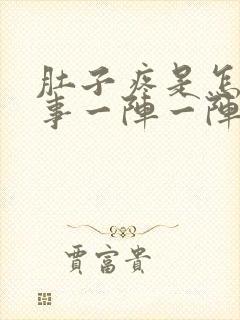 肚子疼是怎
事一陣一陣
賈富貴